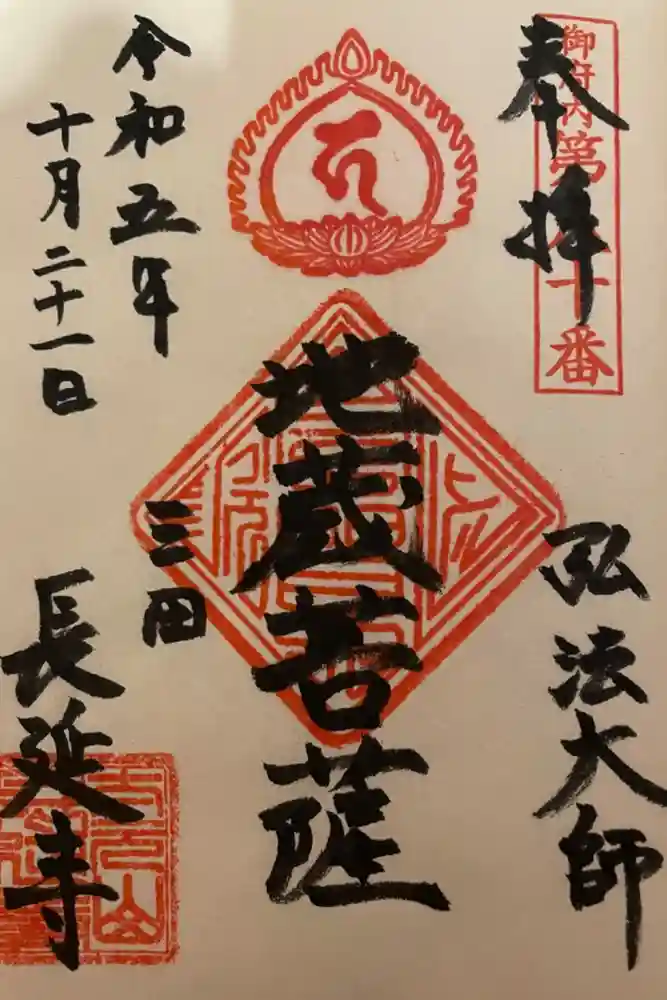 奉拝
御府内第八十番
弘法大師
地蔵菩薩
令和五年
十月二十一日
三田
長延寺